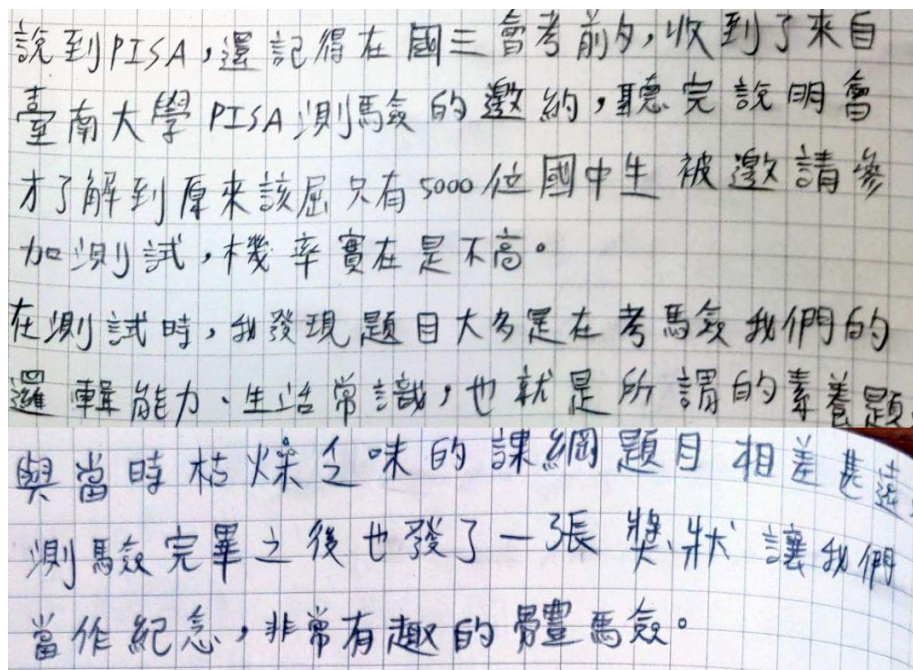 說到PISA,還記得在國三會考前夕,收到了來自
臺南大學PISA測驗的邀約,聽完說明會
才了解到原來該屆只有5000位國中生被邀請參
加測試,機率實在是不高。
在測試時,我發現題目大多是在考驗我們的
邏輯能力、生活常識,也就是所謂的素養題
與當時枯燥乏味的課綱題目相差甚遠,
測驗完畢之後也發了一張獎狀讓我們
當作紀念,非常有趣的體驗。